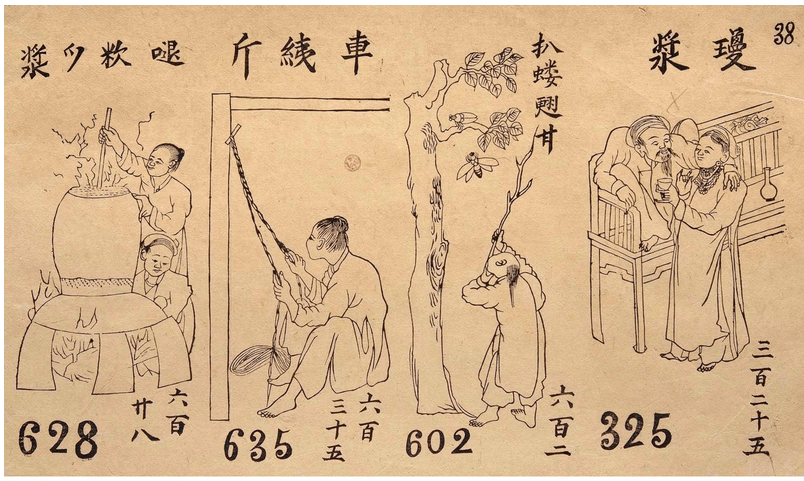 38
瓊漿
三百二十五
325
扒螻 甘
六百二
602
車 斤
六百
三十五
635
漿
六百
廿八
628